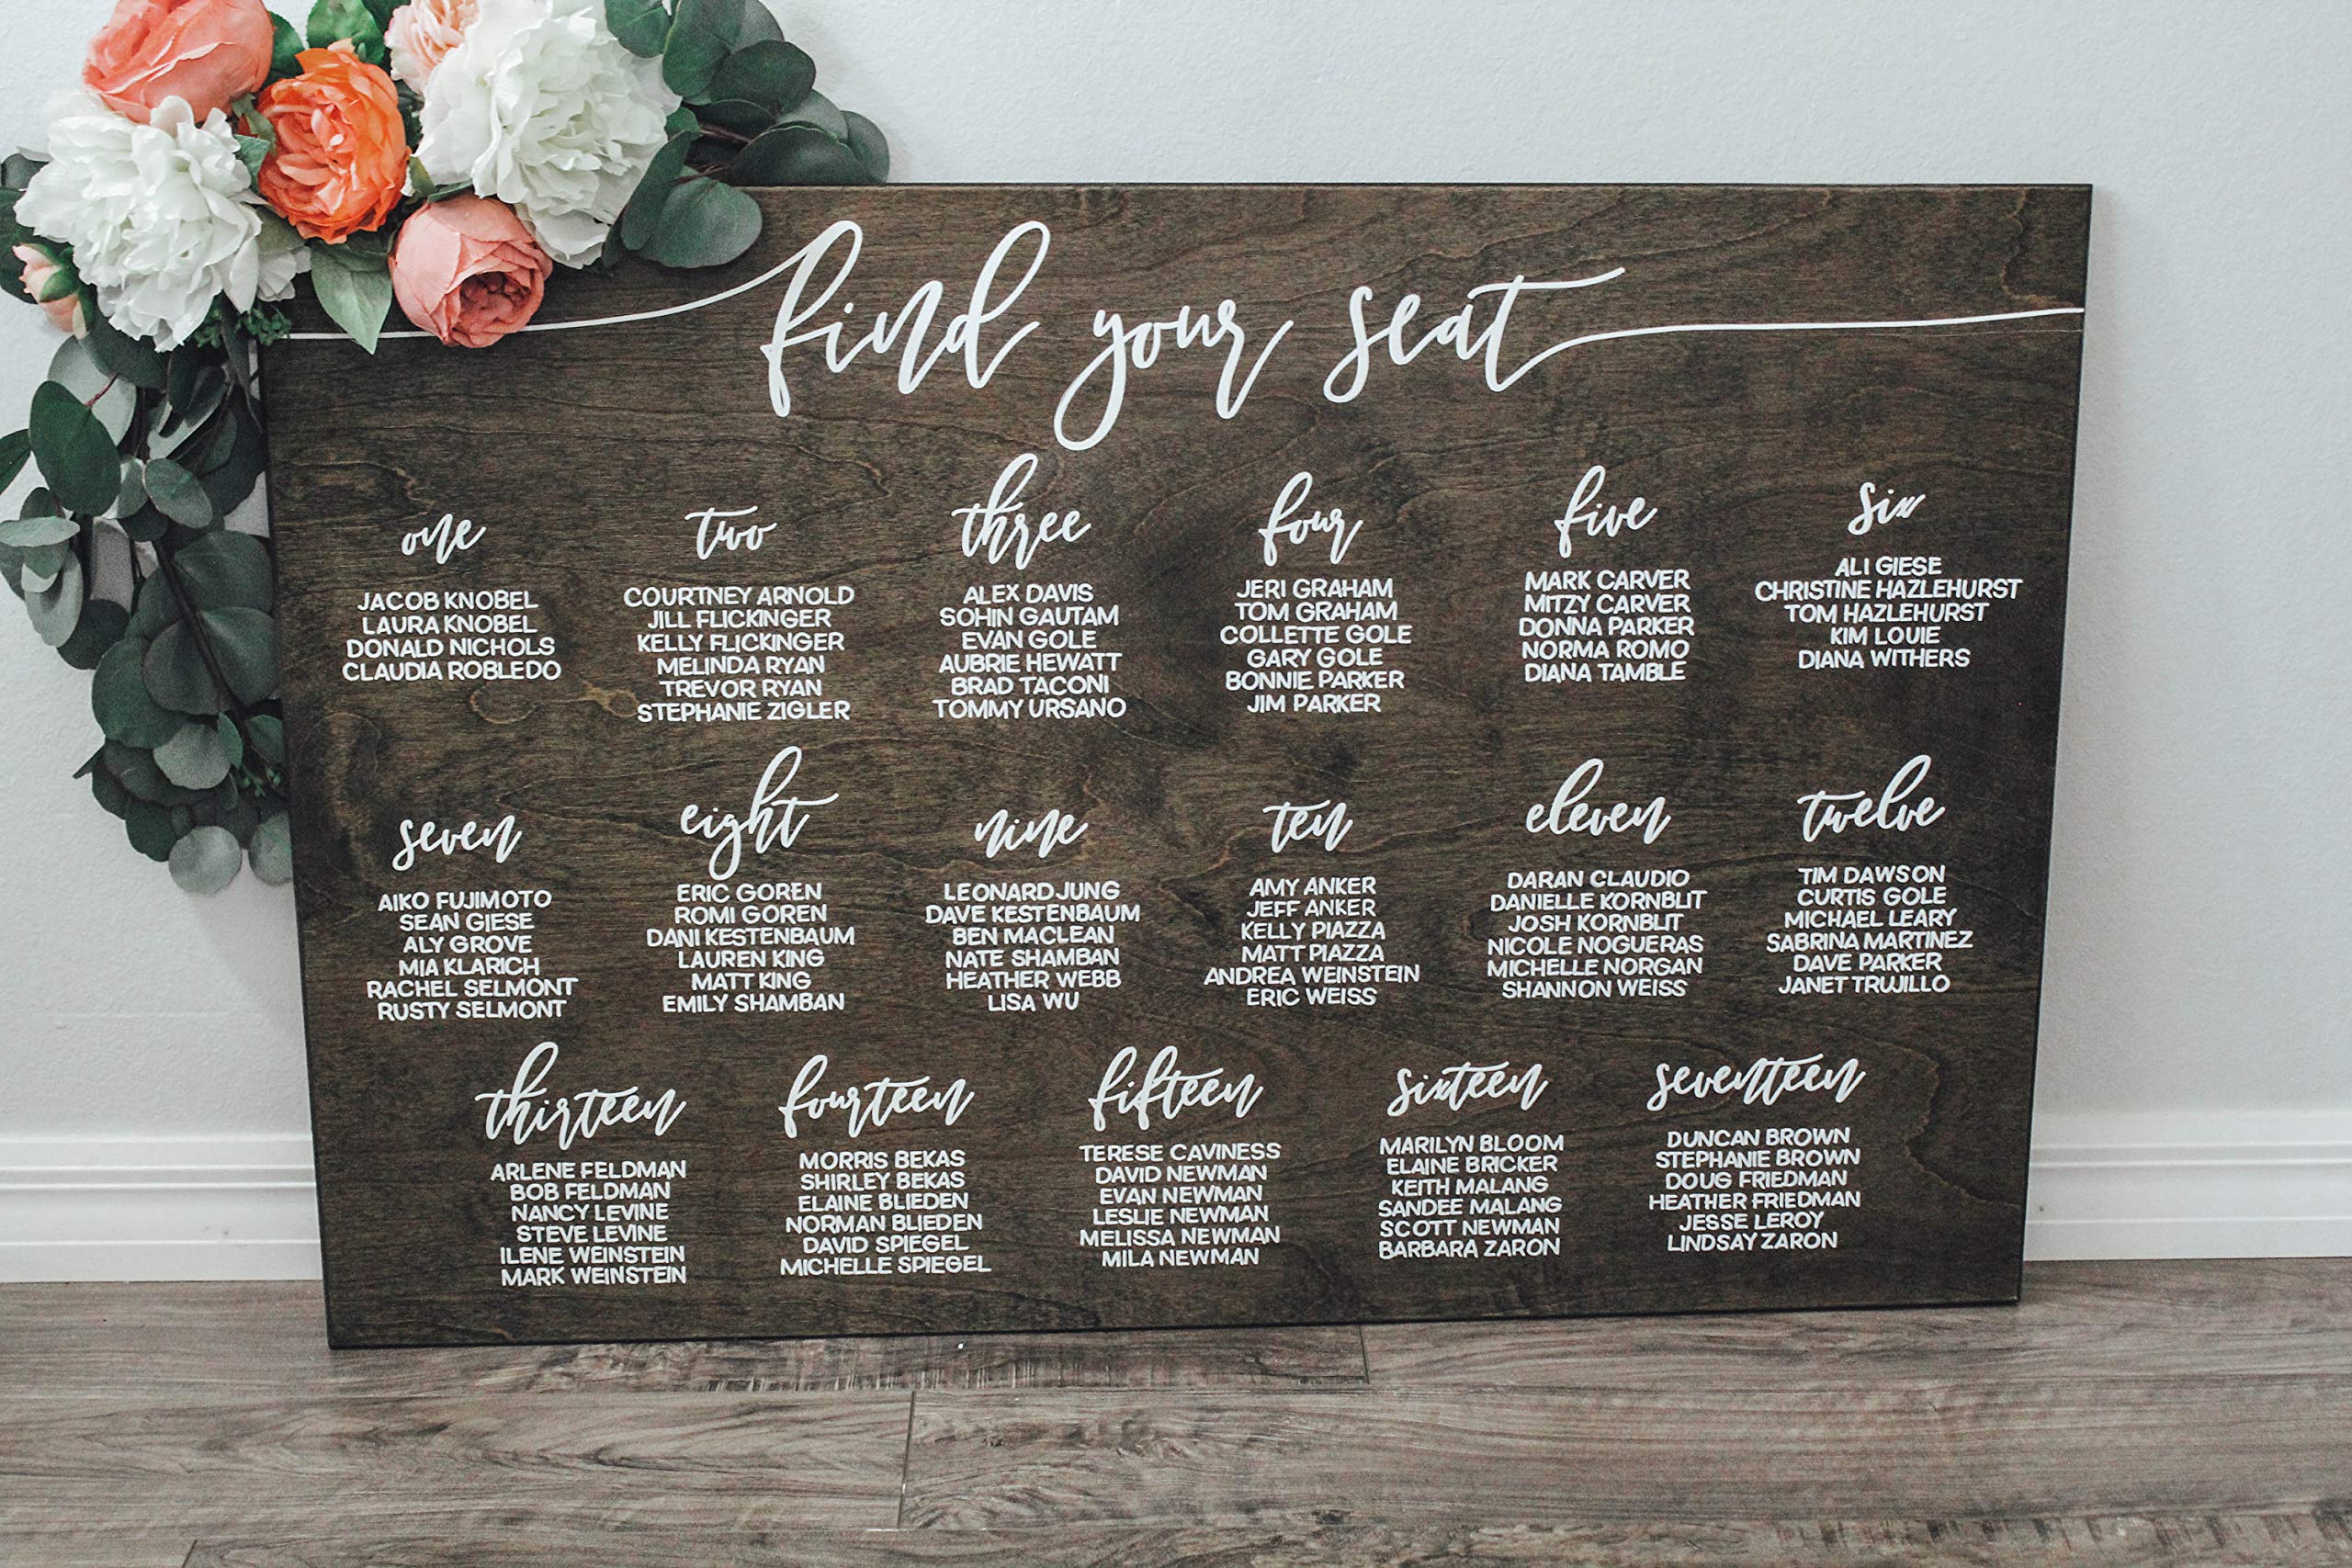 find your seat
one
JACOB KNOBEL
LAURA KNOBEL
DONALD NICHOLS
CLAUDIA ROBLEDO
two
COURTNEY ARNOLD
JILL FLICKINGER
KELLY FLICKINGER
MELINDA RYAN
TREVOR RYAN
STEPHANIE ZIGLER
three
ALEX DAVIS
SOHIN GAUTAM
EVAN GOLE
AUBRIE HEWATT
BRAD TACONI
TOMMY URSANO
four
JERI GRAHAM
TOM GRAHAM
COLLETTE GOLE
GARY GOLE
BONNIE PARKER
JIM PARKER
five
MARK CARVER
MITZY CARVER
DONNA PARKER
NORMA ROMO
DIANA TAMBLE
six
ALI GIESE
CHRISTINE HAZLEHURST
TOM HAZLEHURST
KIM LOUIE
DIANA WITHERS
seven
AIKO FUJIMOTO
SEAN GIESE
ALY GROVE
MIA KLARICH
RACHEL SELMONT
RUSTY SELMONT
eight
ERIC GOREN
ROMI GOREN
DANI KESTENBAUM
LAUREN KING
MATT KING
EMILY SHAMBAN
nine
LEONARD JUNG
DAVE KESTENBAUM
BEN MACLEAN
NATE SHAMBAN
HEATHER WEBB
LISA WU
ten
AMY ANKER
JEFF ANKER
KELLY PIAZZA
MATT PIAZZA
ANDREA WEINSTEIN
ERIC WEISS
eleven
DARAN CLAUDIO
DANIELLE KORNBLIT
JOSH KORNBLIT
NICOLE NOGUERAS
MICHELLE NORGAN
SHANNON WEISS
twelve
TIM DAWSON
CURTIS GOLE
MICHAEL LEARY
SABRINA MARTINEZ
DAVE PARKER
JANET TRUJILLO
thirteen
ARLENE FELDMAN
BOB FELDMAN
NANCY LEVINE
STEVE LEVINE
ILENE WEINSTEIN
MARK WEINSTEIN
fourteen
MORRIS BEKAS
SHIRLEY BEKAS
ELAINE BLIEDEN
NORMAN BLIEDEN
DAVID SPIEGEL
MICHELLE SPIEGEL
fifteen
TERESE CAVINESS
DAVID NEWMAN
EVAN NEWMAN
LESLIE NEWMAN
MELISSA NEWMAN
MILA NEWMAN
sixteen
MARILYN BLOOM
ELAINE BRICKER
KEITH MALANG
SANDEE MALANG
SCOTT NEWMAN
BARBARA ZARON
seventeen
DUNCAN BROWN
STEPHANIE BROWN
DOUG FRIEDMAN
HEATHER FRIEDMAN
JESSE LEROY
LINDSAY ZARON